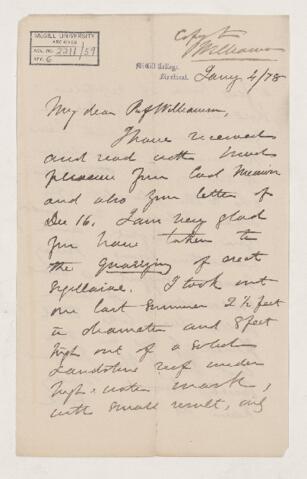 McGILL UNIVERSITY
ARCHIVES
ACC. NO. 2211/59
REF. 6
Copy to
Williamson
McGill College,
Montreal.
Jany 4/78
My dear Prof Williamson,
I have received
and read with much
pleasure your Coal Memoir
and also your letter of
Dec 16. I am very glad
you have taken to
the quarrying of erect
Sigillariae. I took out
one last summer 2½ feet
in diameter and 8 feet
high out of a solid
sandstone reef under
high-water mark,
with small result, and